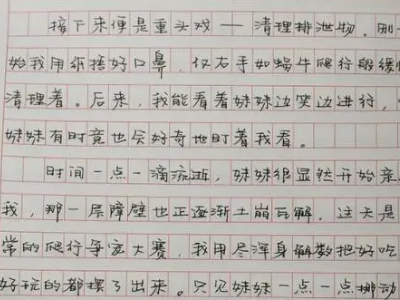 接下来便是重头戏——清理排泄物。刚
始我用纸捂好口鼻，仅右手如蜗牛爬行般缓
清理着。后来，我能看着妹妹边笑边进行，
妹妹有时竟也会好奇地盯着我看。
时间一点一滴流逝，妹妹很显然开始亲
我，那一层障壁也正逐渐土崩瓦解，这天是
常的爬行争宠大赛，我用尽浑身解数把好吃
好玩的都摆了出来。只见妹妹一点一点挪动